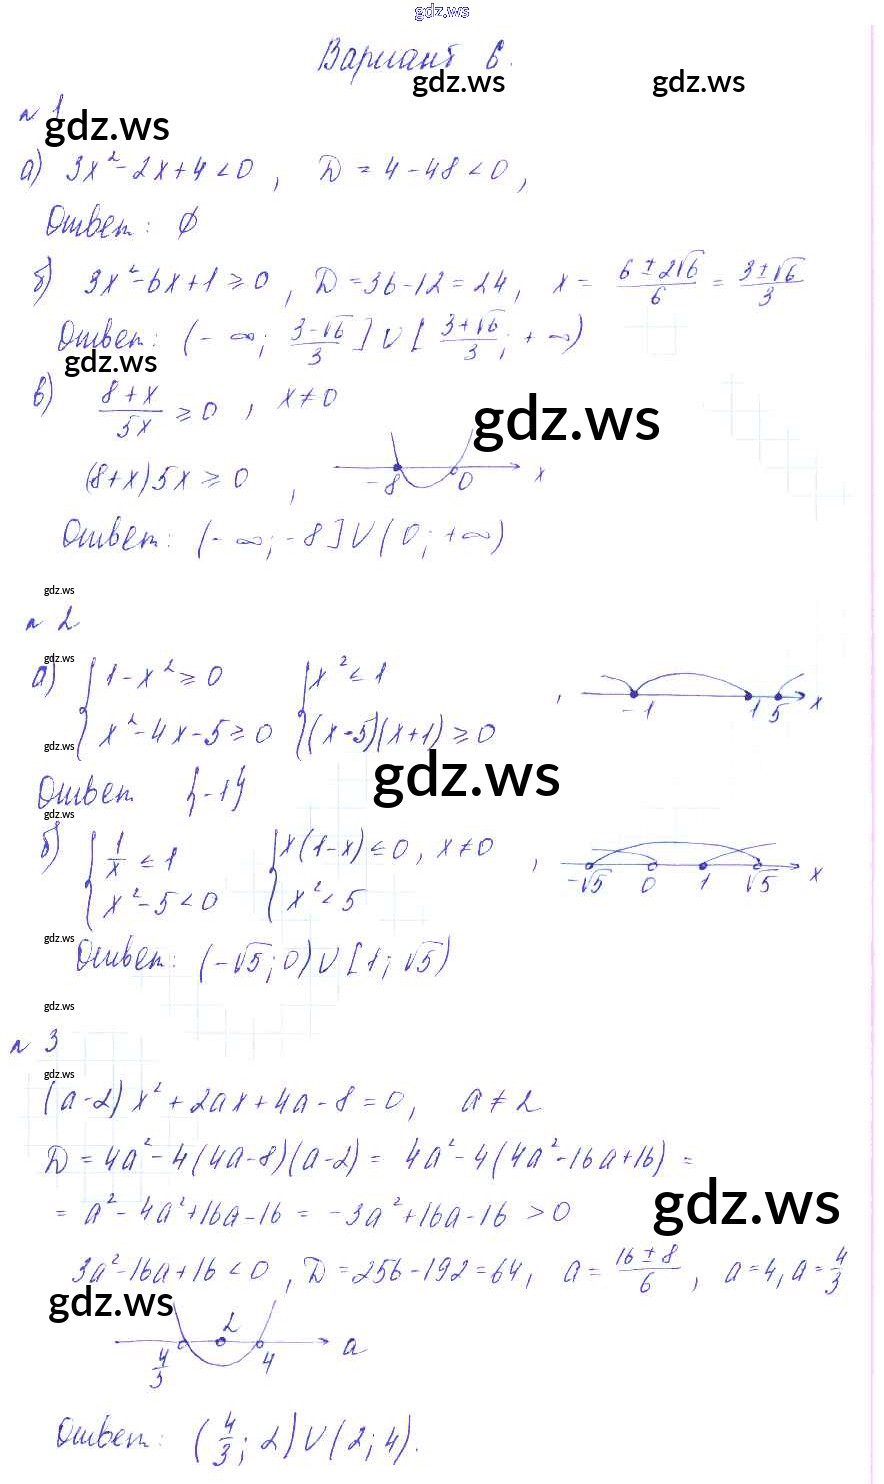 gdz.ws
Вариант 6.
gdz.ws gdz.ws
n 1
gdz.ws
а) 3x² - 2x + 4 < 0 , D = 4 - 48 < 0 ,
Ответ: ∅
б) 3x² - 6x + 1 ≥ 0 , D = 36 - 12 = 24 , x = (6 ± 2√6)/6 = (3 ± √6)/3
Ответ: (-∞; (3-√6)/3] U [(3+√6)/3; +∞)
gdz.ws
в) (8+x)/5x ≥ 0 , x ≠ 0
gdz.ws
(8+x)5x ≥ 0 , -8 0 x
Ответ: (-∞; -8] U (0; +∞)
gdz.ws
n 2
gdz.ws
а) { 1 - x² ≥ 0 { x² ≤ 1
{ x² - 4x - 5 ≥ 0 { (x-5)(x+1) ≥ 0 , -1 1 5 x
gdz.ws
gdz.ws
Ответ {-1}
gdz.ws
б) { 1/x ≤ 1 { x(1-x) ≤ 0, x ≠ 0
{ x² - 5 < 0 { x² < 5 , -√5 0 1 √5 x
gdz.ws
Ответ: (-√5; 0) U [1; √5)
gdz.ws
n 3
gdz.ws
(a-2)x² + 2ax + 4a - 8 = 0, a ≠ 2
D = 4a² - 4(4a-8)(a-2) = 4a² - 4(4a² - 16a + 16) =
gdz.ws
= a² - 4a² + 16a - 16 = -3a² + 16a - 16 > 0
3a² - 16a + 16 < 0 , D = 256 - 192 = 64, a = (16 ± 8)/6 , a = 4, a = 4/3
gdz.ws
4/3 2 4 a
Ответ: (4/3; 2) U (2; 4).